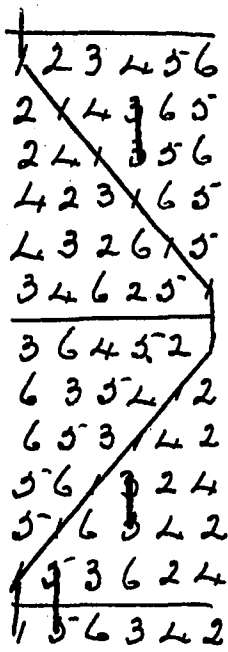 1 2 3 4 5 6
2 1 4 3 6 5
2 4 1 3 5 6
4 2 3 1 6 5
4 3 2 6 1 5
3 4 6 2 5 1
3 6 4 5 2 1
6 3 5 4 1 2
6 5 3 1 4 2
5 6 1 3 2 4
5 1 6 3 4 2
1 5 3 6 2 4
1 5 6 3 4 2